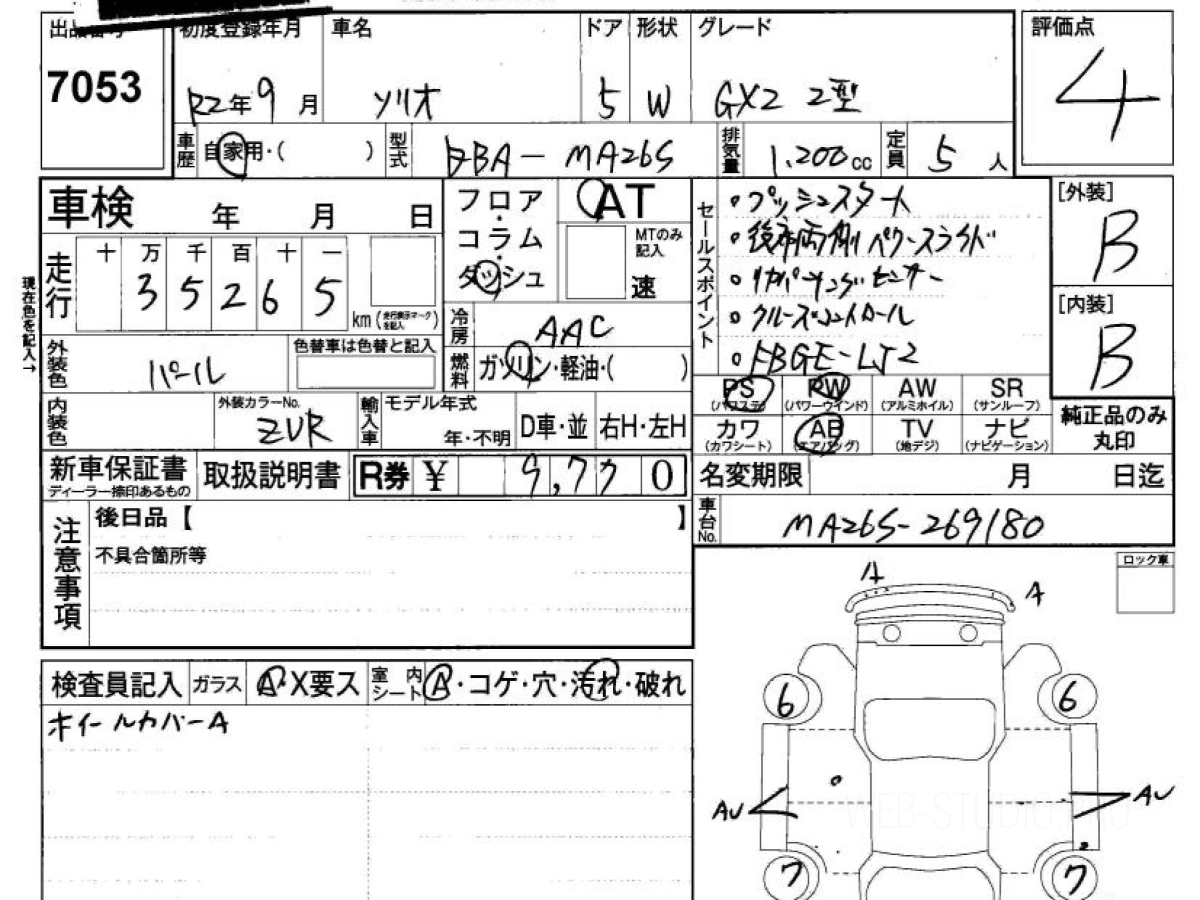 出品番号 初度登録年月 車名 ドア 形状 グレード 評価点
7053 R2年9月 ソリオ 5 W GX2 2型 4
車歴 自家用・( ) 型式 DBA-MA26S 排気量 1,200cc 定員 5人
車検 年 月 日
フロア・コラム・ダッシュ AT MTのみ記入 速
セールスポイント
・プッシュスタート
・後席両側パワースライド
・リヤパーキングセンサー
・クルーズコントロール
[外装] B
[内装] B
現在色を記入→
走行 十 万 千 百 十 一
3 5 2 6 5 km (走行表示マークを記入)
冷房 AAC
外装色 パール 色替車は色替と記入
燃料 ガソリン・軽油・( )
PS (パワステ) PW (パワーウインド) AW (アルミホイル) SR (サンルーフ)
カワ (カワシート) AB (エアバッグ) TV (地デジ) ナビ (ナビゲーション)
純正品のみ丸印
内装色 外装カラーNo. ZVR 輸入車 モデル年式 年・不明 D車・並 右H・左H
新車保証書 ディーラー捺印あるもの 取扱説明書 R券 ¥ 9,770
名変期限 月 日迄
車台No. MA26S-269180
注意事項
後日品【 】
不具合箇所等
ロック車
検査員記入 ガラス A・X要ス 室内シート A・コゲ・穴・汚れ・破れ
ホイールカバーA
A A
6 6
AU AU
WEB-STUDIO.PRO
7 7